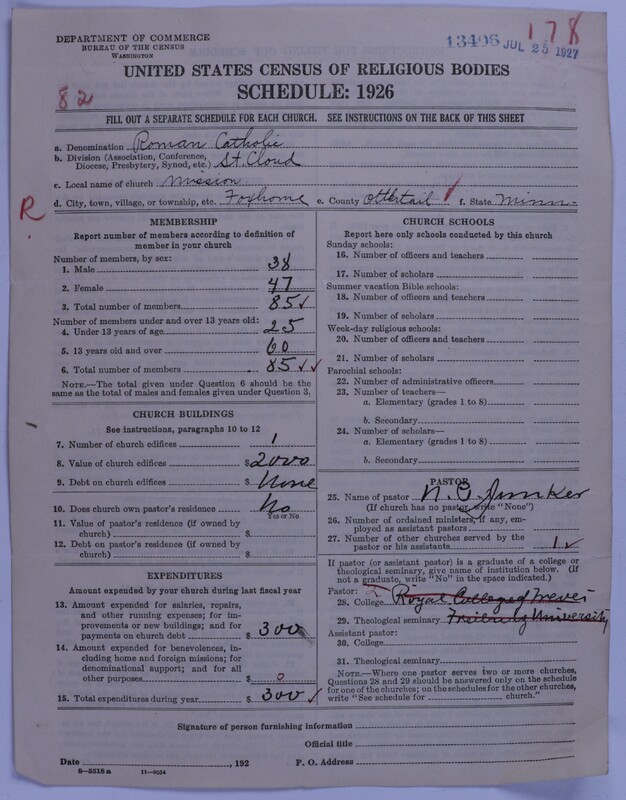 DEPARTMENT OF COMMERCE
BUREAU OF THE CENSUS
WASHINGTON
13406 JUL 25 1927
178
UNITED STATES CENSUS OF RELIGIOUS BODIES
SCHEDULE: 1926
82
FILL OUT A SEPARATE SCHEDULE FOR EACH CHURCH. SEE INSTRUCTIONS ON THE BACK OF THIS SHEET
a. Denomination Roman Catholic
b. Division (Association, Conference, Diocese, Presbytery, Synod, etc.) St. Cloud
c. Local name of church Mission
d. City, town, village, or township, etc. Foxhome e. County Ottertail f. State Minn-
R
MEMBERSHIP
Report number of members according to definition of
member in your church
Number of members, by sex:
1. Male 38
2. Female 47
3. Total number of members 85 ✓
Number of members under and over 13 years old:
4. Under 13 years of age 25
5. 13 years old and over 60
6. Total number of members 85 ✓ ✓
NOTE.—The total given under Question 6 should be the
same as the total of males and females given under Question 3.
CHURCH BUILDINGS
See instructions, paragraphs 10 to 12
7. Number of church edifices 1
8. Value of church edifices $ 2000
9. Debt on church edifices $ None
10. Does church own pastor's residence? No
Yes or No
11. Value of pastor's residence (if owned by
church) $
12. Debt on pastor's residence (if owned by
church) $
EXPENDITURES
Amount expended by your church during last fiscal year
13. Amount expended for salaries, repairs,
and other running expenses; for im-
provements or new buildings; and for
payments on church debt $ 300
14. Amount expended for benevolences, in-
cluding home and foreign missions; for
denominational support; and for all
other purposes $ 0
15. Total expenditures during year $ 300 ✓
CHURCH SCHOOLS
Report here only schools conducted by this church
Sunday schools:
16. Number of officers and teachers
17. Number of scholars
Summer vacation Bible schools:
18. Number of officers and teachers
19. Number of scholars
Week-day religious schools:
20. Number of officers and teachers
21. Number of scholars
Parochial schools:
22. Number of administrative officers
23. Number of teachers—
a. Elementary (grades 1 to 8)
b. Secondary
24. Number of scholars—
a. Elementary (grades 1 to 8)
b. Secondary
PASTOR
25. Name of pastor N. O. Junker
(If church has no pastor, write "None")
26. Number of ordained ministers, if any, em-
ployed as assistant pastors
27. Number of other churches served by the
pastor or his assistants 1 ✓
If pastor (or assistant pastor) is a graduate of a college or
theological seminary, give name of institution below. (If
not a graduate, write "No" in the space indicated.)
Pastor:
28. College Royal College of Treves
29. Theological seminary Freiburg University
Assistant pastor:
30. College
31. Theological seminary
NOTE.—Where one pastor serves two or more churches,
Questions 28 and 29 should be answered only on the schedule
for one of the churches; on the schedules for the other churches,
write "See schedule for church."
Signature of person furnishing information
Official title
Date , 192 P. O. Address
8-5518 a 11-9034